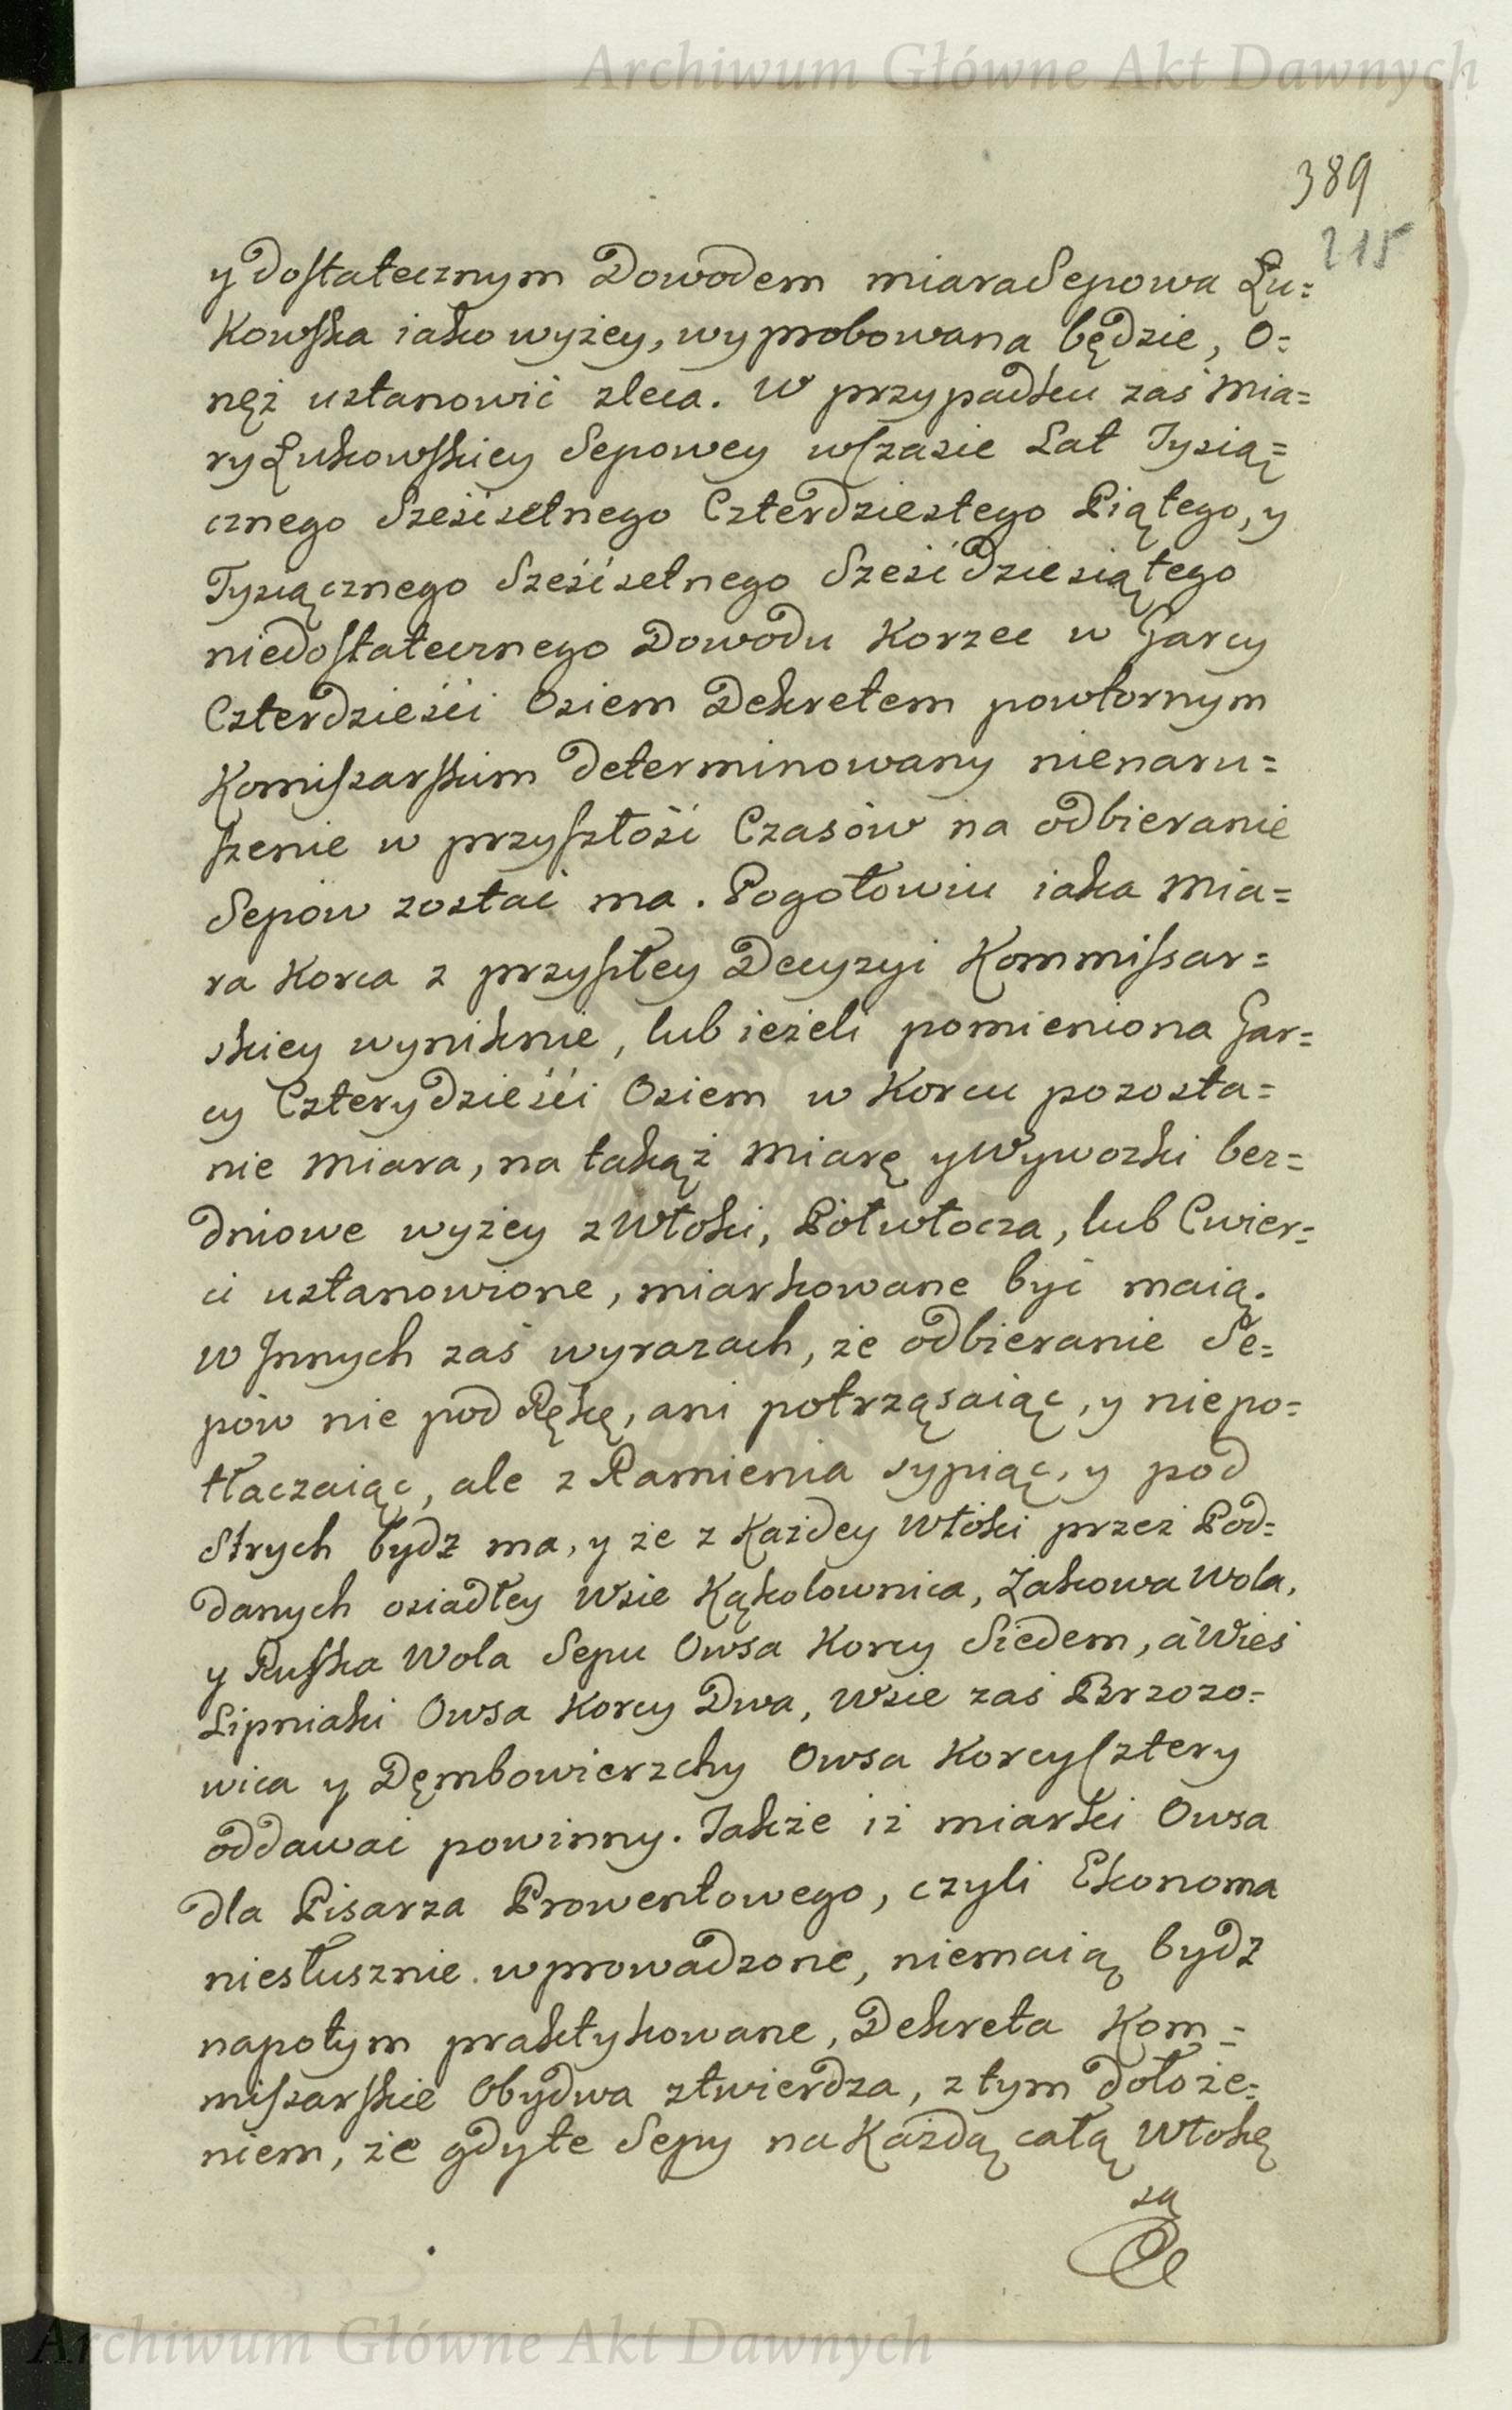 Archiwum Główne Akt Dawnych
389
215
y dostatecznym Dowodem miara Sepowa Łu=
Kowska iako wyżey, wyprobowana będzie, O=
nęż ustanowić zleca. W przypadku zaś Mia=
ry Łukowskiey Sepowey wczasie Lat Tysią=
cznego Sześćsetnego Czterdziestego Piątego, y
Tysiącznego Sześćsetnego Sześćdziesiątego
niedostatecznego Dowodu Korzec w Garcy
Czterdzieści Osiem Dekretem powtornym
Komissarskim determinowany nienaru=
szenie w przyszłość Czasów na odbieranie
Sepów zostać ma. Pogotowiu iaka Mia=
ra Korca z przyszłey Decyzyi Kommissar=
skiey wyniknie, lub ieżeli pomieniona Gar=
cy Czterydzieści Osiem w Korcu pozosta=
nie Miara, na takąż Miarę y Wywozki bez=
dniowe wyżey z Włoki, Półwłocza, lub Cwier=
ci ustanowione, miarkowane być maią.
w Jnnych zaś wyrazach, że odbieranie Se=
pów nie pod Rękę, ani potrząsaiąc, y niepo=
tłaczaiąc, ale z Ramienia sypiąc, y pod
Strych bydz ma, y że z Każdey Włóki przez Pod=
danych osiadłey Wsie Kąkolownica, Żakowa Wola,
y Ruska Wola Sepu Owsa Korcy Siedem, à Wieś
Lipniaki Owsa Korcy Dwa, Wsie zaś Brzozo=
wica y Dęmbowierzchy Owsa Korcy cztery
oddawać powinny. Także iż miarki Owsa
dla Pisarza Prowentowego, czyli Ekonoma
niesłusznie wprowadzone, niemaią bydz
napotym praktykowane, Dekreta Kom=
missarskie Obydwa ztwierdza, z tym dołoże=
niem, że gdyte Sepy na Każdą całą Włokę
są
Archiwum Główne Akt Dawnych